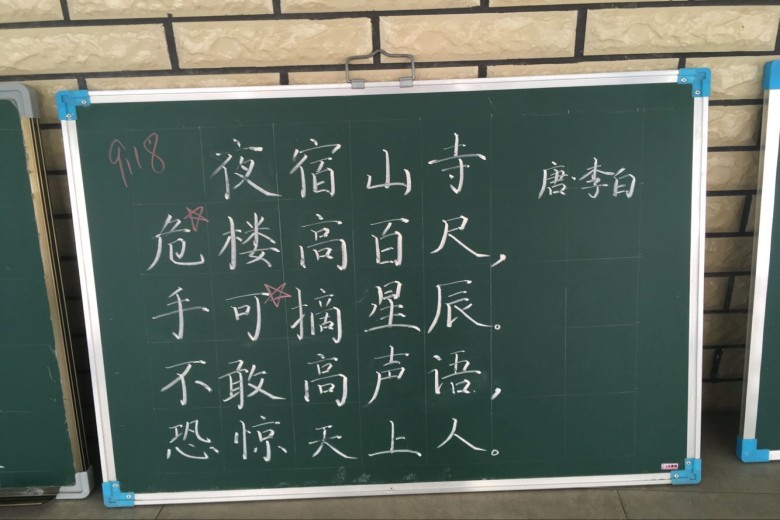 9.18
夜宿山寺
唐·李白
危楼高百尺，
手可摘星辰。
不敢高声语，
恐惊天上人。